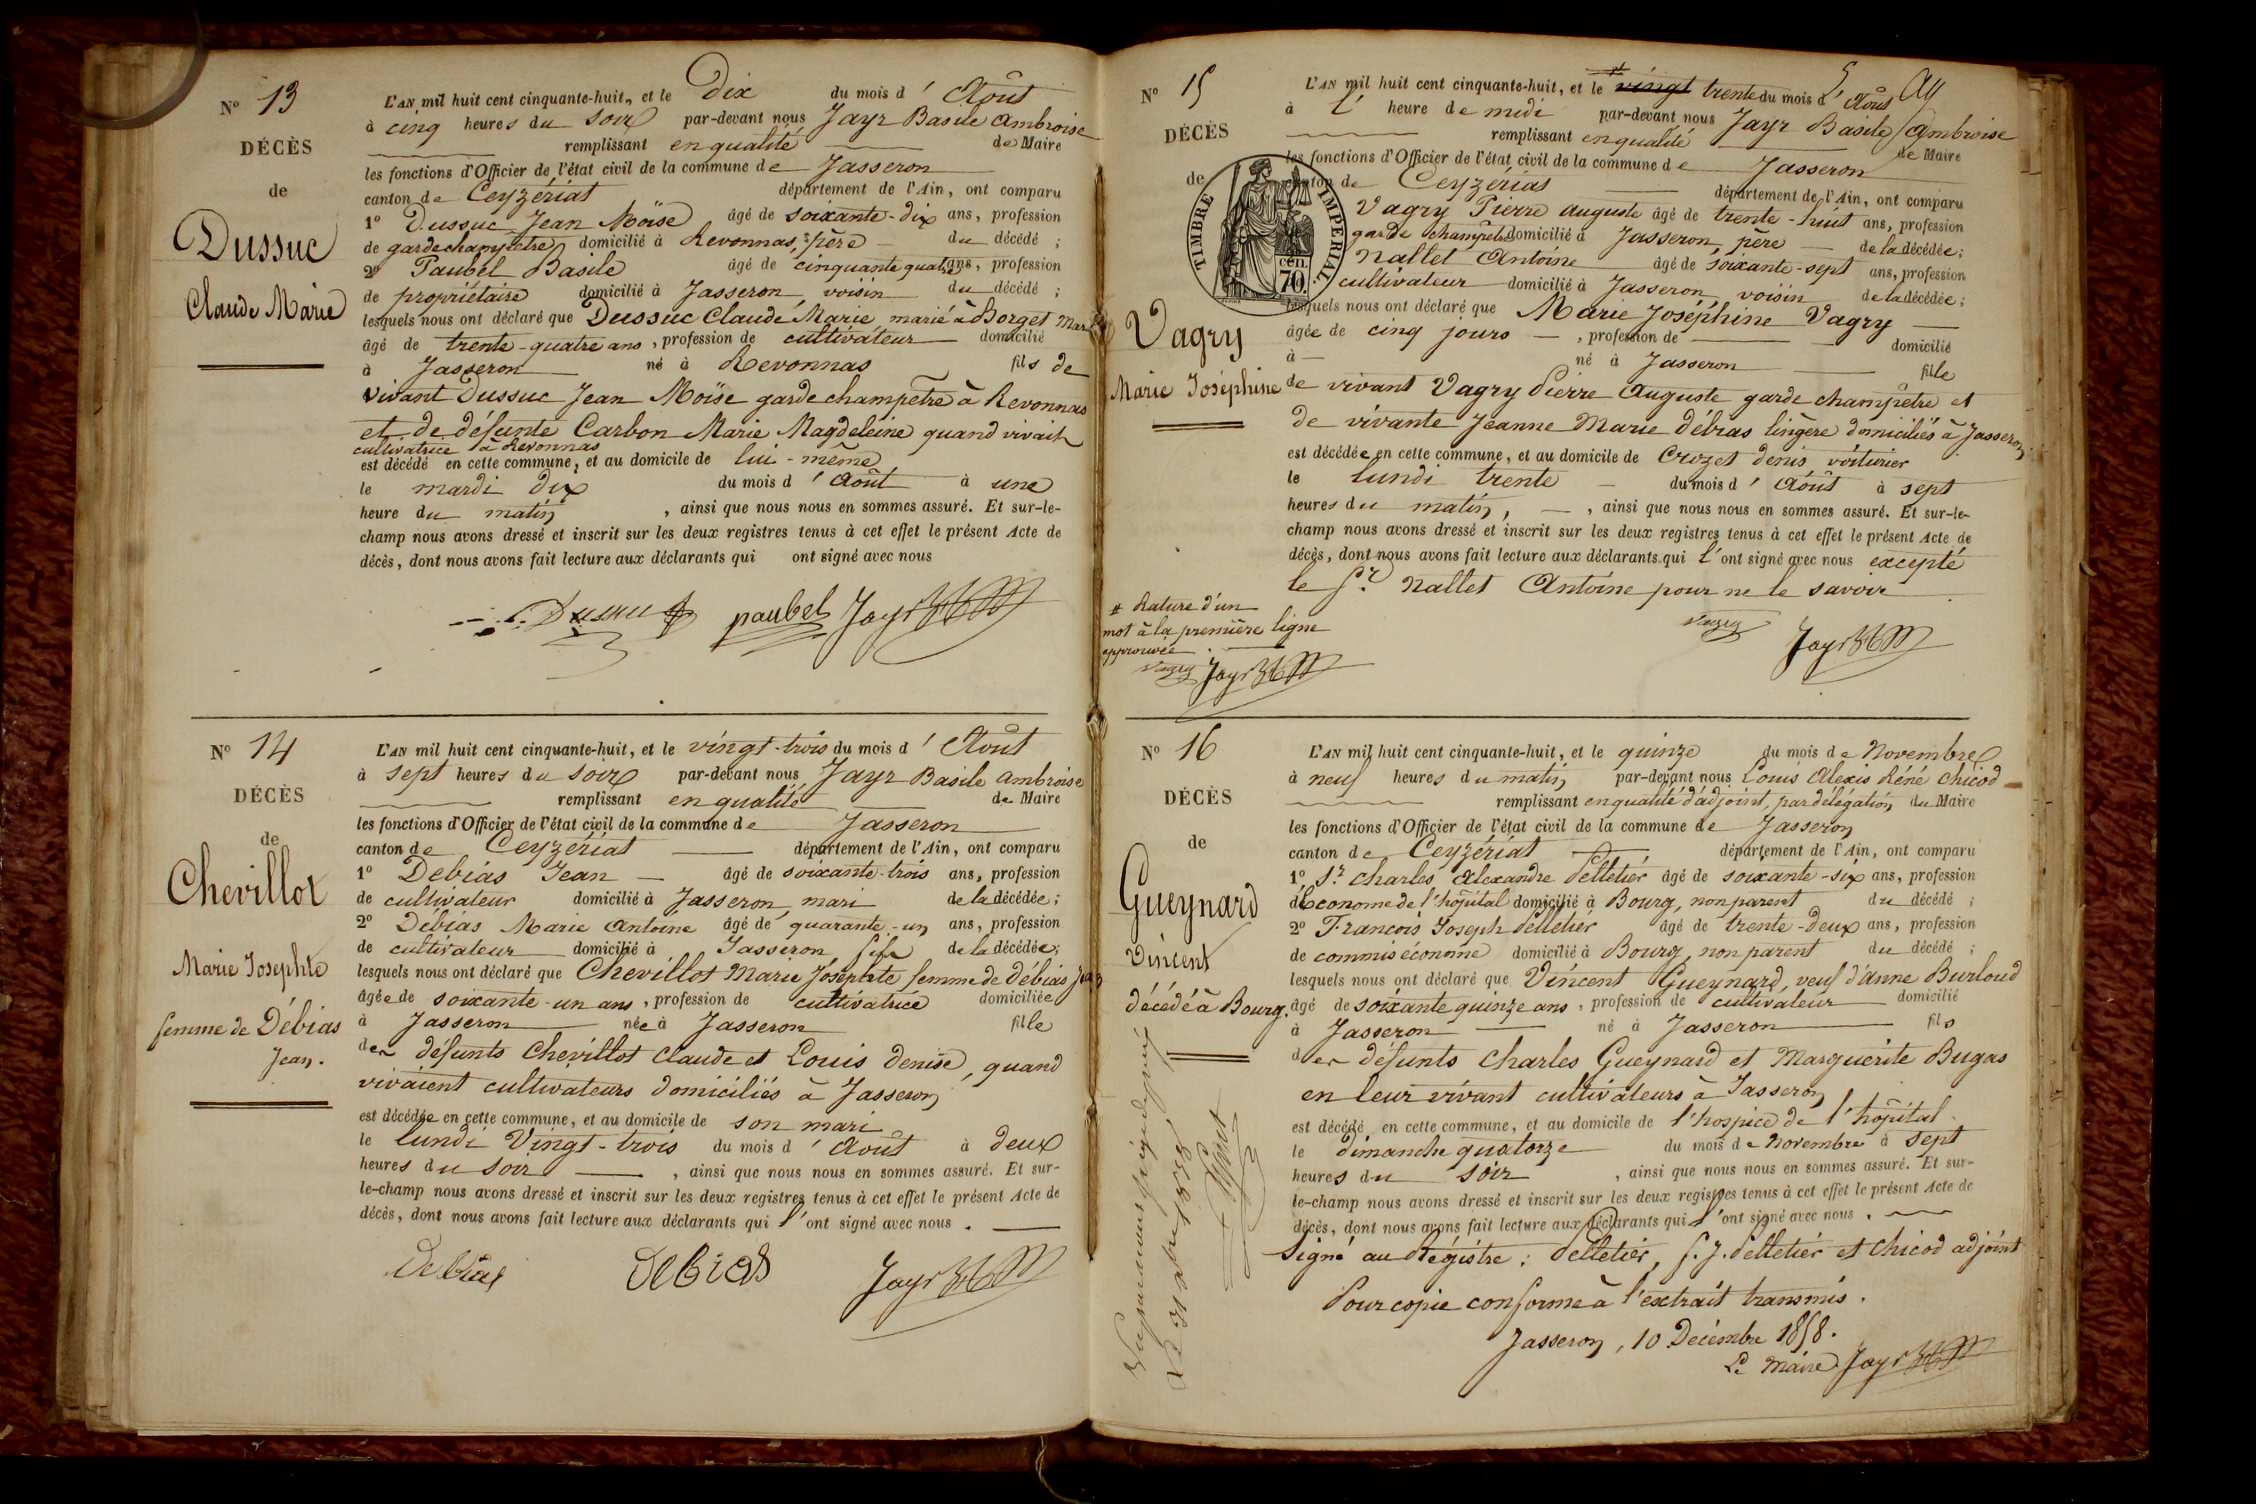 N° 13
DÉCÈS
de
Dussuc
Claude Marie
L'AN mil huit cent cinquante-huit, et le Dix du mois d' Août
à cinq heures du soir par-devant nous Jayr Basile Ambroise
remplissant en qualité de Maire
les fonctions d'Officier de l'état civil de la commune de Jasseron
canton de Ceyzériat département de l'Ain, ont comparu
1° Dussuc Jean Moïse âgé de soixante-dix ans, profession
de garde champêtre domicilié à Revonnas, père du décédé ;
2° Paubel Basile âgé de cinquante quatre ans, profession
de propriétaire domicilié à Jasseron voisin du décédé ;
lesquels nous ont déclaré que Dussuc Claude Marie marié à Borget Marie
âgé de trente-quatre ans, profession de cultivateur domicilié
à Jasseron né à Revonnas fils de
vivant Dussuc Jean Moïse garde champetre à Revonnas
et de défunte Carbon Marie Magdeleine quand vivait
cultivatrice à Revonnas
est décédé en cette commune, et au domicile de lui-même
le mardi dix du mois d' Août à une
heure du matin, ainsi que nous nous en sommes assuré. Et sur-le-
champ nous avons dressé et inscrit sur les deux registres tenus à cet effet le présent Acte de
décès, dont nous avons fait lecture aux déclarants qui ont signé avec nous
Dussuc paubel Jayr
N° 14
DÉCÈS
de
Chevillot
Marie Josephte
femme de Débias
Jean.
L'AN mil huit cent cinquante-huit, et le vingt-trois du mois d' Août
à sept heures du soir par-devant nous Jayr Basile Ambroise
remplissant en qualité de Maire
les fonctions d'Officier de l'état civil de la commune de Jasseron
canton de Ceyzériat département de l'Ain, ont comparu
1° Debias Jean âgé de soixante-trois ans, profession
de cultivateur domicilié à Jasseron mari de la décédée ;
2° Débias Marie Antoine âgé de quarante-un ans, profession
de cultivateur domicilié à Jasseron fils de la décédée ;
lesquels nous ont déclaré que Chevillot Marie Josephte femme de Débias Jean
âgée de soixante-un ans, profession de cultivatrice domiciliée
à Jasseron née à Jasseron fille
des défunts Chevillot Claude et Louis Denise, quand
vivaient cultivateurs domiciliés à Jasseron
est décédée en cette commune, et au domicile de son mari
le lundi Vingt-trois du mois d' Août à deux
heures du soir, ainsi que nous nous en sommes assuré. Et sur-
le-champ nous avons dressé et inscrit sur les deux registres tenus à cet effet le présent Acte de
décès, dont nous avons fait lecture aux déclarants qui l'ont signé avec nous.
Debias Debias Jayr
N° 15
DÉCÈS
de
TIMBRE IMPERIAL
cen.
70.
Vagry
Marie Joséphine
L'AN mil huit cent cinquante-huit, et le # vingt trente du mois d' Août
à l' heure de midi par-devant nous Jayr Basile Ambroise
remplissant en qualité de Maire
les fonctions d'Officier de l'état civil de la commune de Jasseron
canton de Ceyzériat département de l'Ain, ont comparu
Vagry Pierre Auguste âgé de trente-huit ans, profession
garde champêtre domicilié à Jasseron père de la décédée ;
Nallet Antoine âgé de soixante-sept ans, profession
cultivateur domicilié à Jasseron voisin de la décédée ;
lesquels nous ont déclaré que Marie Joséphine Vagry
âgée de cinq jours, profession de domicilié
à né à Jasseron fille
de vivant Vagry Pierre Auguste garde champêtre et
de vivante Jeanne Marie Débias lingère domiciliés à Jasseron
est décédée en cette commune, et au domicile de Crozet denis voiturier
le lundi trente du mois d' Août à sept
heures du matin, ainsi que nous nous en sommes assuré. Et sur-le-
champ nous avons dressé et inscrit sur les deux registres tenus à cet effet le présent Acte de
décès, dont nous avons fait lecture aux déclarants qui l'ont signé avec nous excepté
le Sr. Nallet Antoine pour ne le savoir
# Rature d'un
mot à la première ligne
approuvée.
Vagry Jayr
Vagry Jayr
N° 16
DÉCÈS
de
Gueynard
Vincent
décédé à Bourg.
L'AN mil huit cent cinquante-huit, et le quinze du mois de Novembre
à neuf heures du matin par-devant nous Louis Alexis Réné Chicod
remplissant en qualité d'adjoint, par délégation du Maire
les fonctions d'Officier de l'état civil de la commune de Jasseron
canton de Ceyzériat département de l'Ain, ont comparu
1° Sr. Charles Alexandre Pelletier âgé de soixante-six ans, profession
d'Econome de l'hôpital domicilié à Bourg, non parent du décédé ;
2° François Joseph Pelletier âgé de trente-deux ans, profession
de commis économe domicilié à Bourg, non parent du décédé ;
lesquels nous ont déclaré que Vincent Gueynard, veuf d'Anne Burloud
âgé de soixante quinze ans, profession de cultivateur domicilié
à Jasseron né à Jasseron fils
des défunts Charles Gueynard et Marguerite Bugas
en leur vivant cultivateurs à Jasseron
est décédé en cette commune, et au domicile de l'hospice de l'hôpital
le dimanche quatorze du mois de Novembre à sept
heures du soir, ainsi que nous nous en sommes assuré. Et sur-
le-champ nous avons dressé et inscrit sur les deux registres tenus à cet effet le présent Acte de
décès, dont nous avons fait lecture aux déclarants qui l'ont signé avec nous.
Signé au Régistre : Pelletier, f. J. Pelletier et Chicod adjoint
Pour copie conforme à l'extrait transmis.
Jasseron, 10 Décembre 1858.
Le Maire Jayr